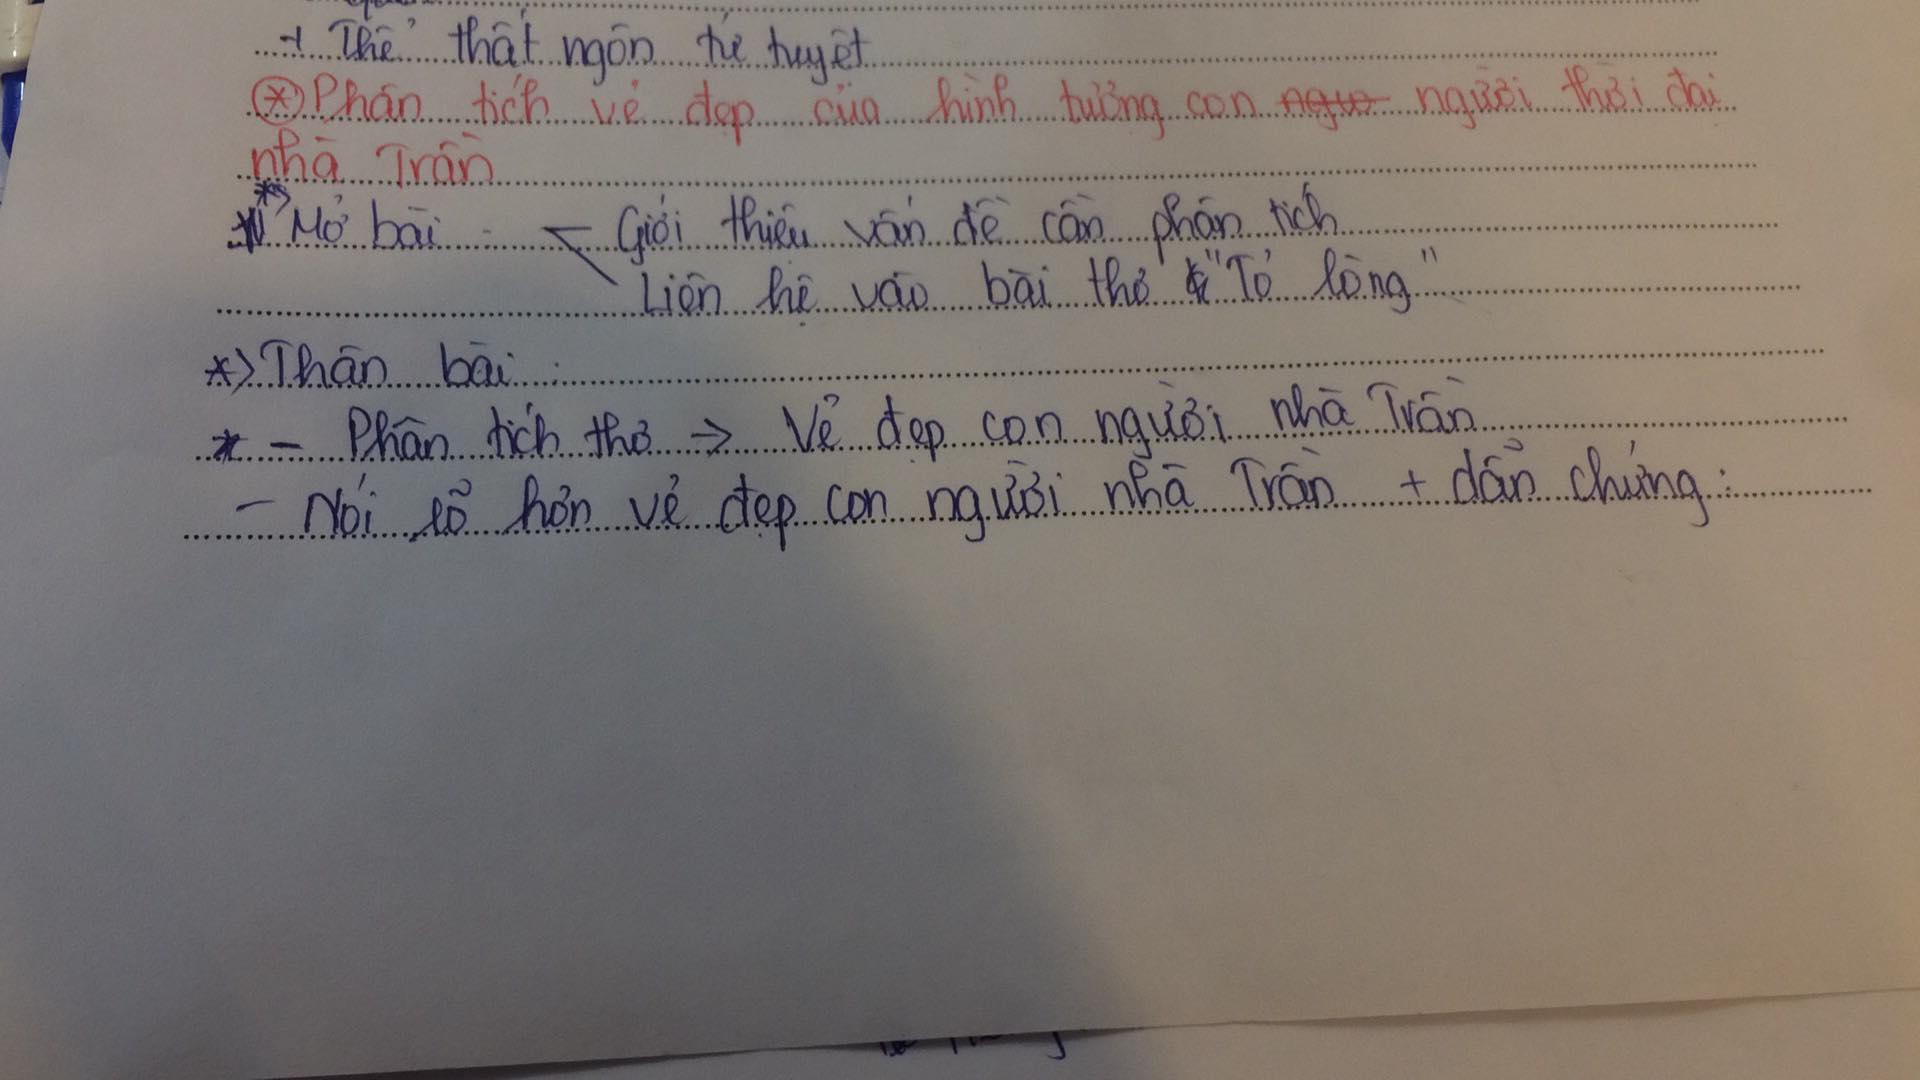 + Thể thất ngôn tứ tuyệt
(*) Phân tích vẻ đẹp của hình tượng con người thời đại
nhà Trần
*) Mở bài - Giới thiệu vấn đề cần phân tích
Liên hệ vào bài thơ "Tỏ lòng"
*) Thân bài :
- Phân tích thơ → Vẻ đẹp con người nhà Trần
- Nói rõ hơn vẻ đẹp con người nhà Trần + dẫn chứng :